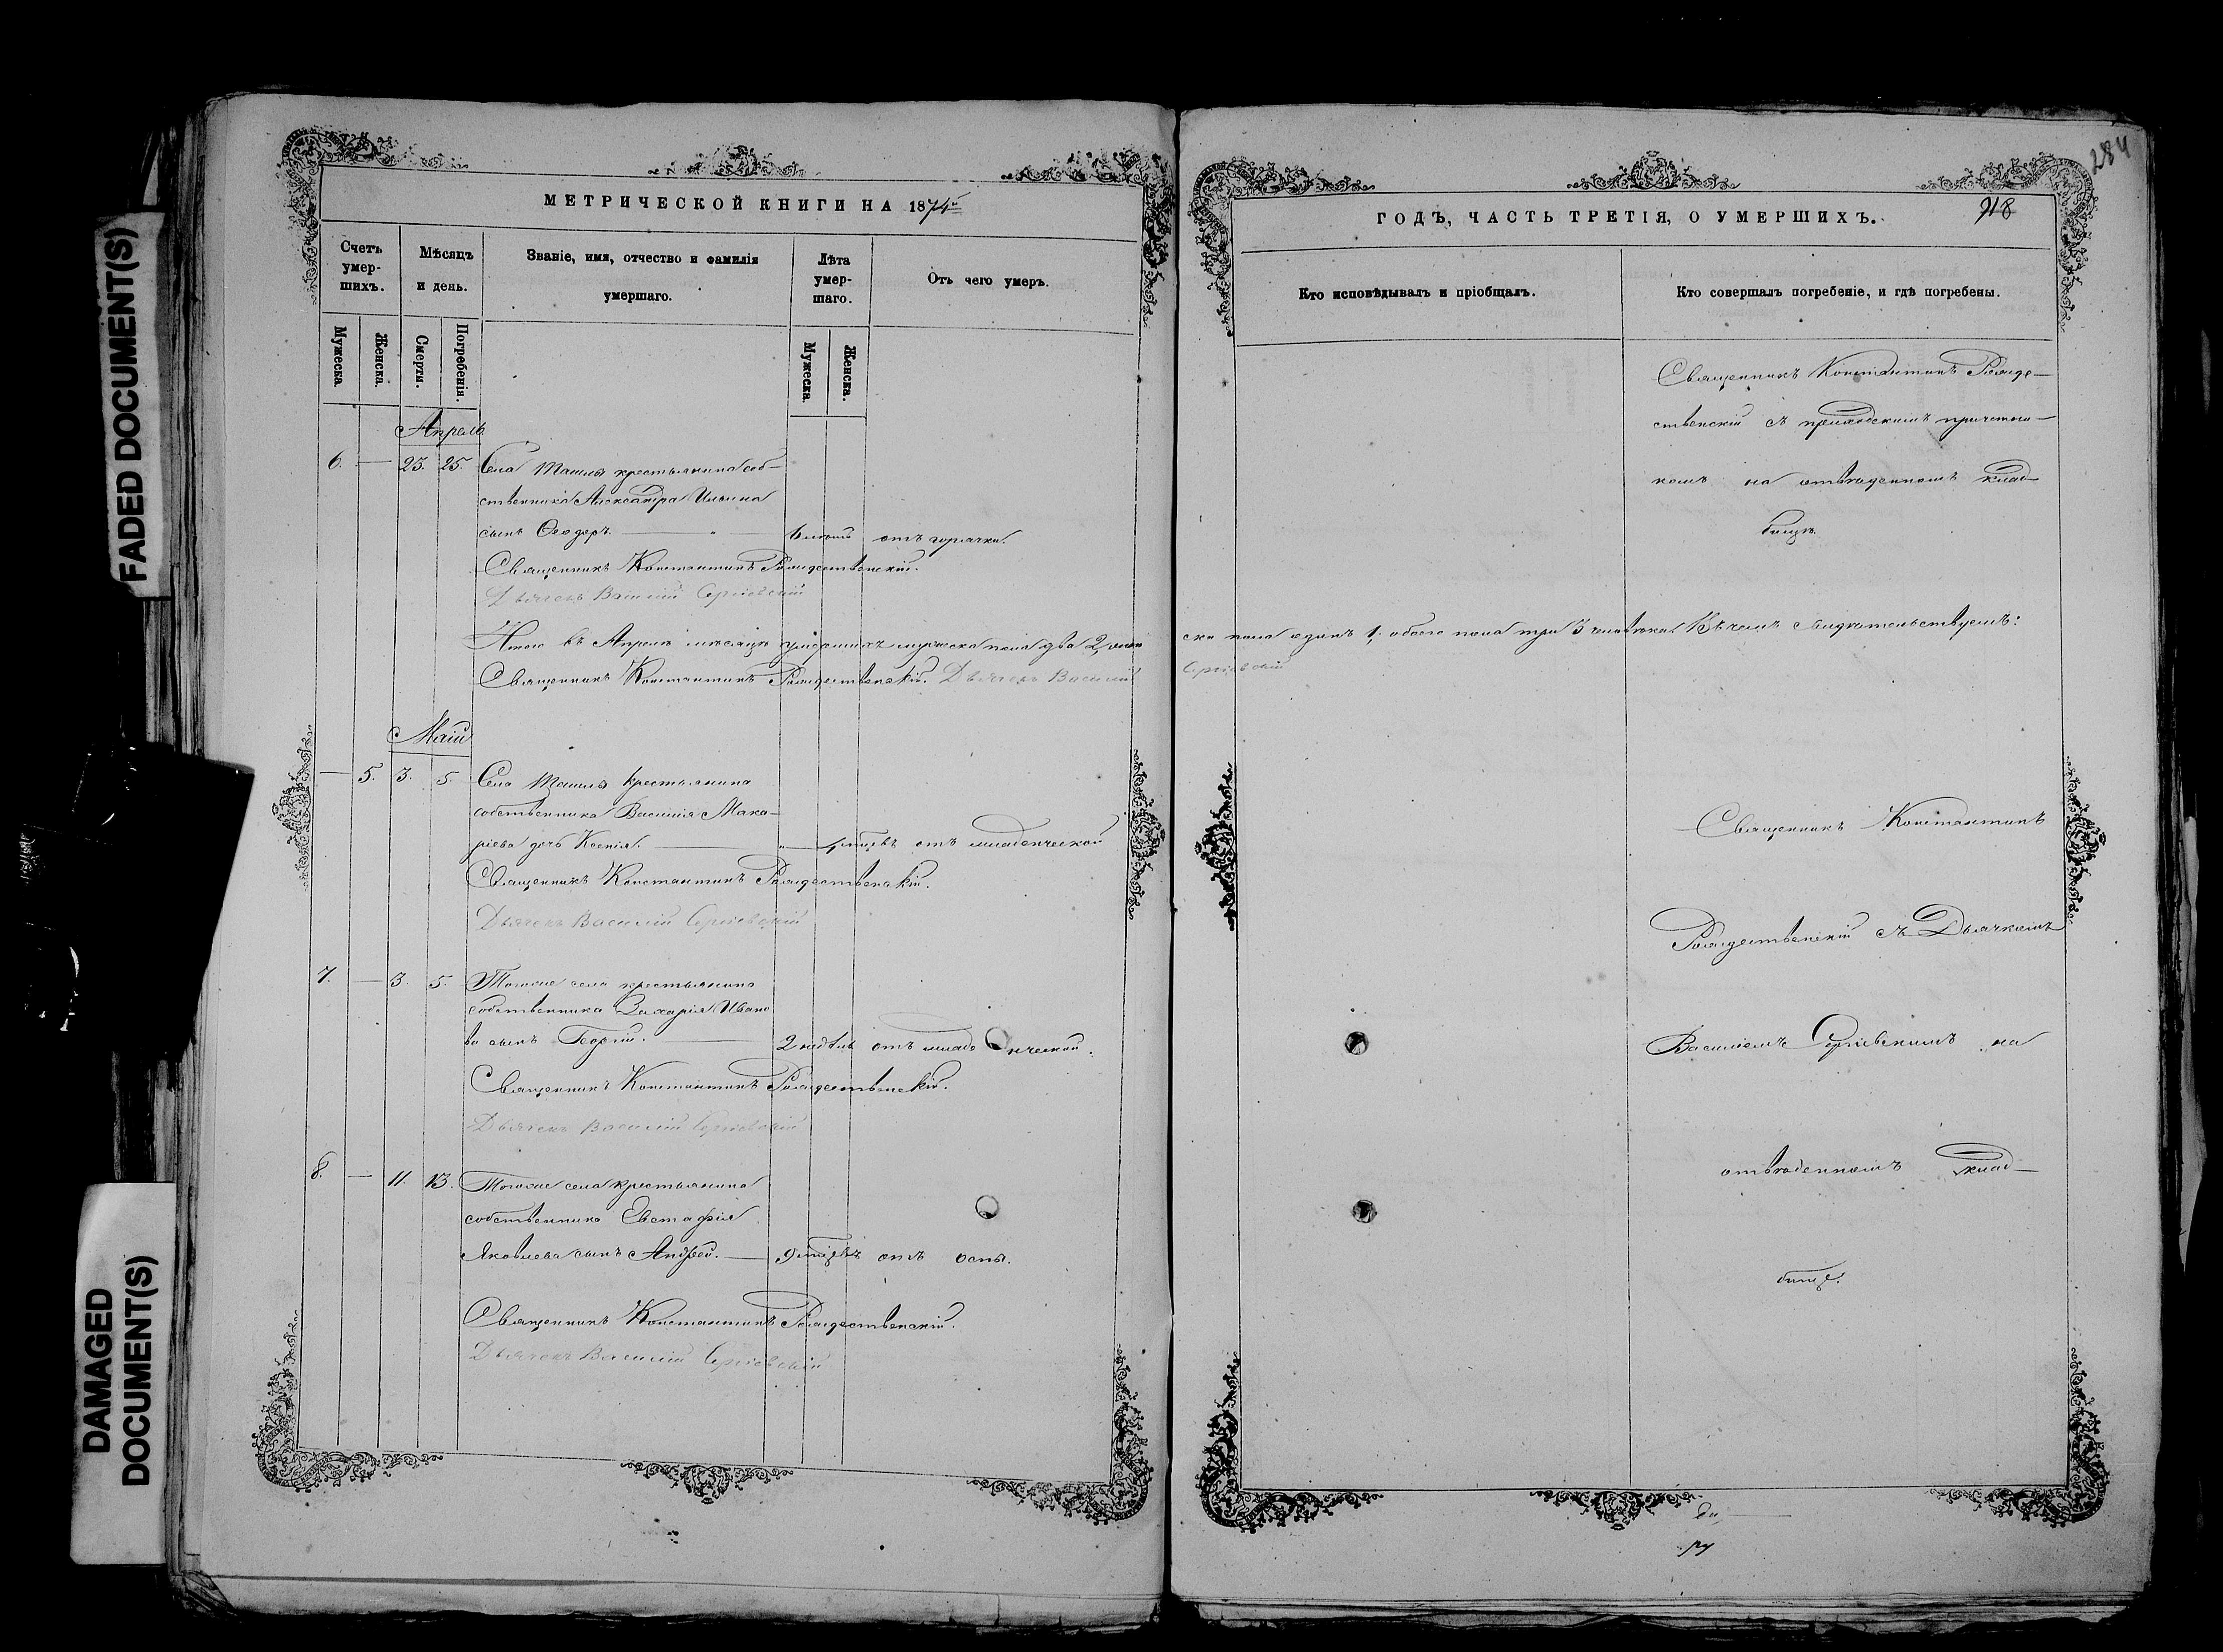 FADED DOCUMENT(S)
DAMAGED
DOCUMENT(S)
МЕТРИЧЕСКОЙ КНИГИ НА 1874й
Счетъ
умер-
шихъ.
Мѣсяцъ
и день.
Званіе, имя, отчество и фамилія
умершаго.
Лѣта
умер-
шаго.
Отъ чего умеръ.
Мужеска.
Женска.
Смерти.
Погребенія.
Мужеска.
Женска.
Апрель
6. — 23. 25. Села крестьянина соб-
ственника Александра Ильина
сынъ Ѳеодоръ. отъ горячки.
Священникъ Константинъ Рождественскій.
Дьячекъ Василій Сергіевскій
Итого въ Апрелѣ мѣсяцѣ умершихъ мужеска пола два 2, жен
Священникъ Константинъ Рождественскій. Дьячекъ Василій
Маій
— 5. 3. 5. Села крестьянина
собственника Василія Мака-
ріева дочь Ксенія. отъ младенческой
Священникъ Константинъ Рождественскій.
Дьячекъ Василій Сергіевскій
7. — 3. 5. Тогоже села крестьянина
собственника Захарія Ивано
ва сынъ Георгій. 2 недѣль отъ младенческой.
Священникъ Константинъ Рождественскій.
Дьячекъ Василій Сергіевскій
8. — 11. 13. Тогоже села крестьянина
собственника Евстафія
Яковлева сынъ Андрей. — 9 мѣсяцъ отъ оспы.
Священникъ Константинъ Рождественскій.
Дьячекъ Василій Сергіевскій
284
918
ГОДЪ, ЧАСТЬ ТРЕТІЯ, О УМЕРШИХЪ.
Кто исповѣдывалъ и пріобщалъ.
Кто совершалъ погребеніе, и гдѣ погребены.
Священникъ Константинъ Рожде-
ственскій съ приходскимъ причетни-
комъ на отведенномъ клад-
бищѣ.
ска пола одинъ 1. обоего пола три 3 человѣка. Въ чемъ свидѣтельствуемъ:
Сергіевскій
Священникъ Константинъ
Рождественскій съ Дьячкомъ
Василіемъ Сергіевскимъ на
отведенномъ клад-
бище.